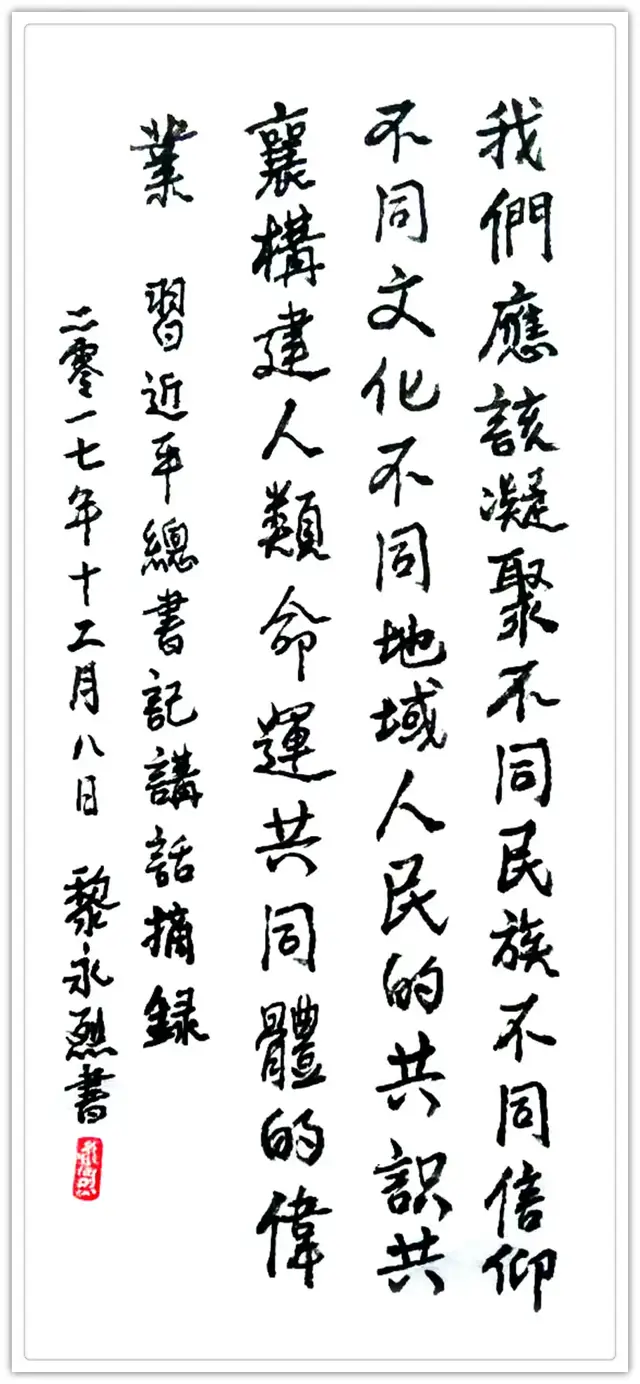 我們應該凝聚不同民族不同信仰
不同文化不同地域人民的共識共
襄構建人類命運共同體的偉
業 習近平總書記講話摘録
二零一七年十二月八日 黎永烈書